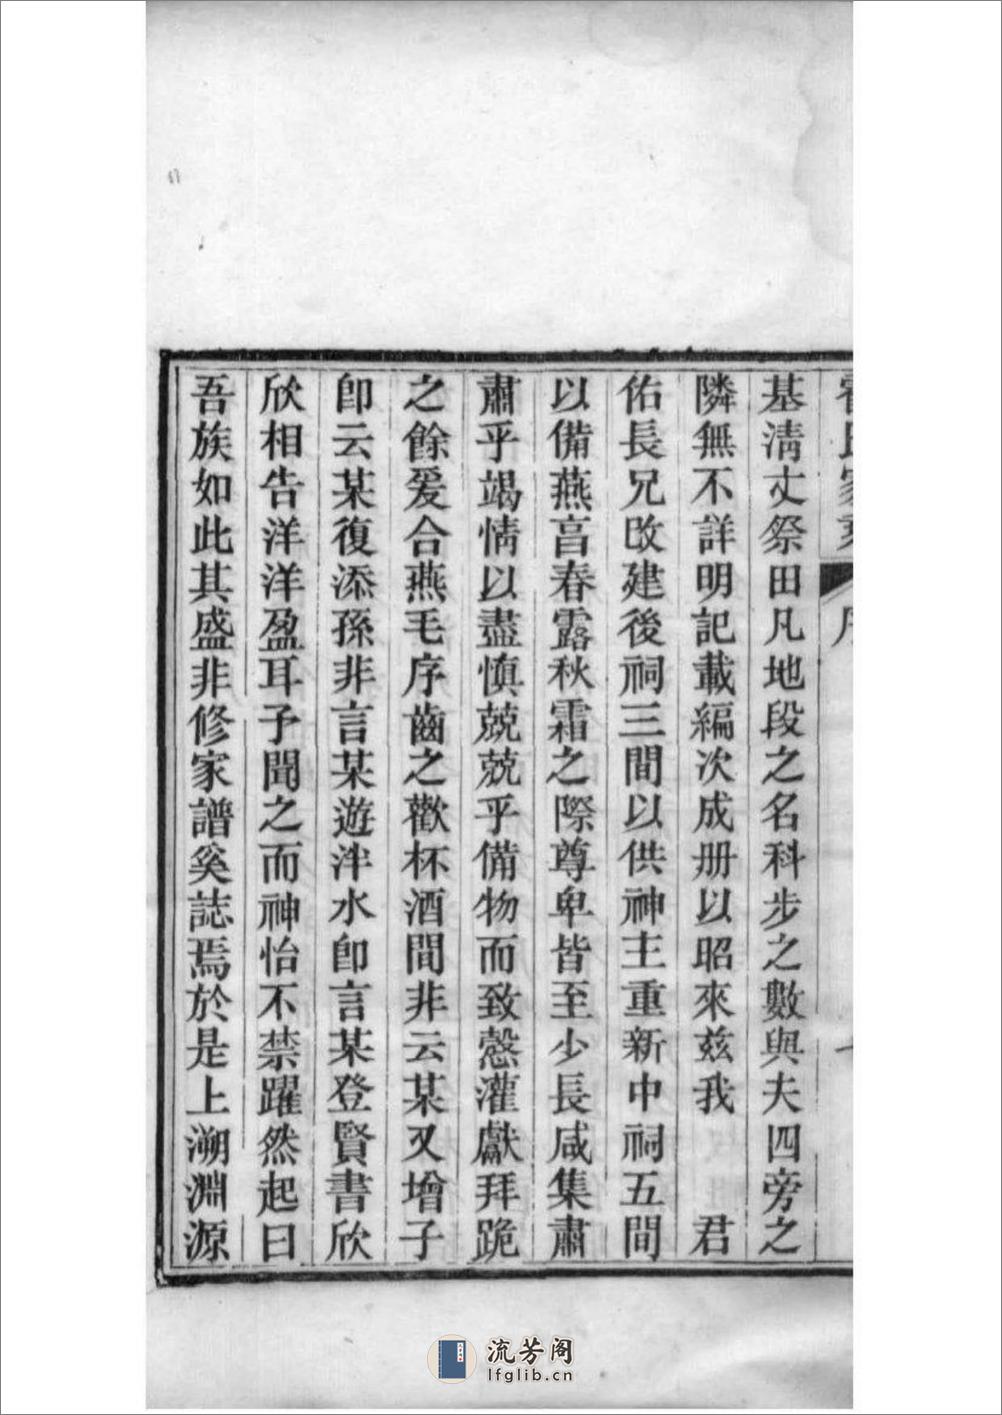 基清丈祭田凡地段之名科步之數與夫四旁之
隣無不詳明記載編次成册以昭來兹我　君
佑長兄改建後祠三間以供神主重新中祠五間
以備燕亯春露秋霜之際尊卑皆至少長咸集肅
肅乎竭情以盡慎兢兢乎備物而致慤灌獻拜跪
之餘爰合燕毛序齒之歡杯酒間非云某又增子
卽云某復添孫非言某遊泮水卽言某登賢書欣
欣相告洋洋盈耳予聞之而神怡不禁躍然起曰
吾族如此其盛非修家譜奚誌焉於是上溯淵源
流芳阁
lfglib.cn